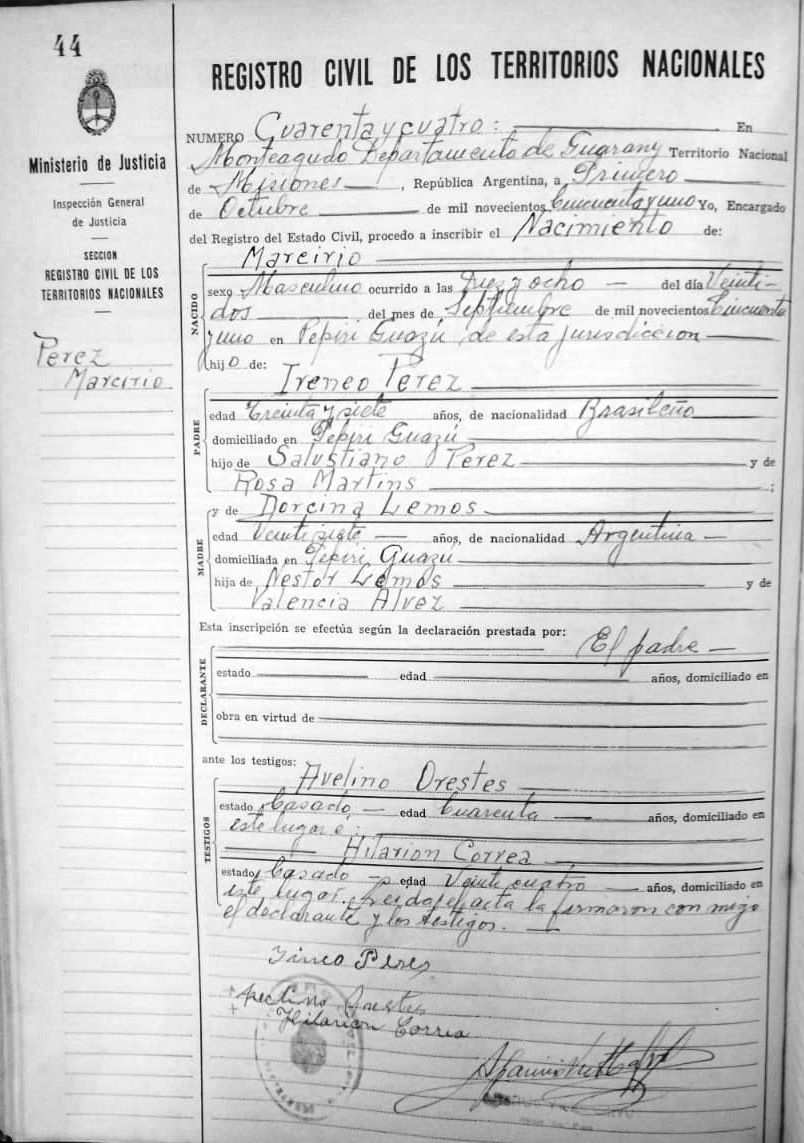 44
Ministerio de Justicia
Inspección General
de Justicia
SECCION
REGISTRO CIVIL DE LOS
TERRITORIOS NACIONALES
Perez
Marcirio
REGISTRO CIVIL DE LOS TERRITORIOS NACIONALES
NUMERO Cuarenta y cuatro: En
Monteagudo Departamento de Guarany Territorio Nacional
de Misiones, República Argentina, a Primero
de Octubre de mil novecientos Cincuenta y uno Yo, Encargado
del Registro del Estado Civil, procedo a inscribir el Nacimiento de:
NACIDO
Marcirio
sexo Masculino ocurrido a las Diez y ocho del día Veinti-
dos del mes de Septiembre de mil novecientos Cincuenta
y uno en Pepiri Guazú, de esta jurisdiccion
hijo de:
PADRE
Ireneo Perez
edad Treinta y siete años, de nacionalidad Brasileño
domiciliado en Pepiri Guazú
hijo de Salustiano Perez y de
Rosa Martins ;
MADRE
y de Dorcina Lemos
edad Veintisiete años, de nacionalidad Argentina
domiciliada en Pepiri Guazú
hija de Nestor Lemos y de
Valencia Alvez
Esta inscripción se efectúa según la declaración prestada por: El padre
DECLARANTE
estado edad años, domiciliado en
obra en virtud de
ante los testigos:
TESTIGOS
Avelino Orestes
estado Casado edad Cuarenta años, domiciliado en
este lugar é
Hilarion Correa
estado Casado edad Veinticuatro años, domiciliado en
este lugar. Leida el acta la firmaron con migo
el declarante y los testigos.
Perez
Hilarion Correa